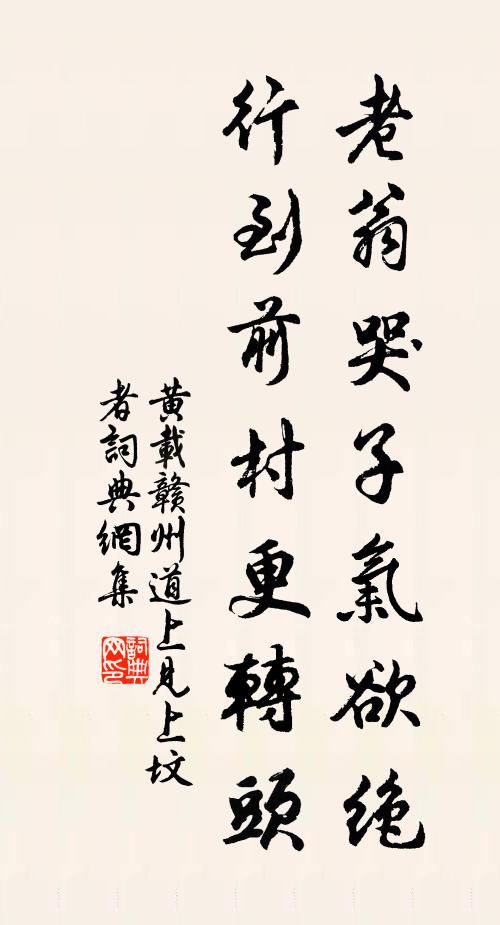 老翁哭子氣欲絶
行到前村更轉頭
黃載贛州道上見上墳
者詞典網集
詞典网印